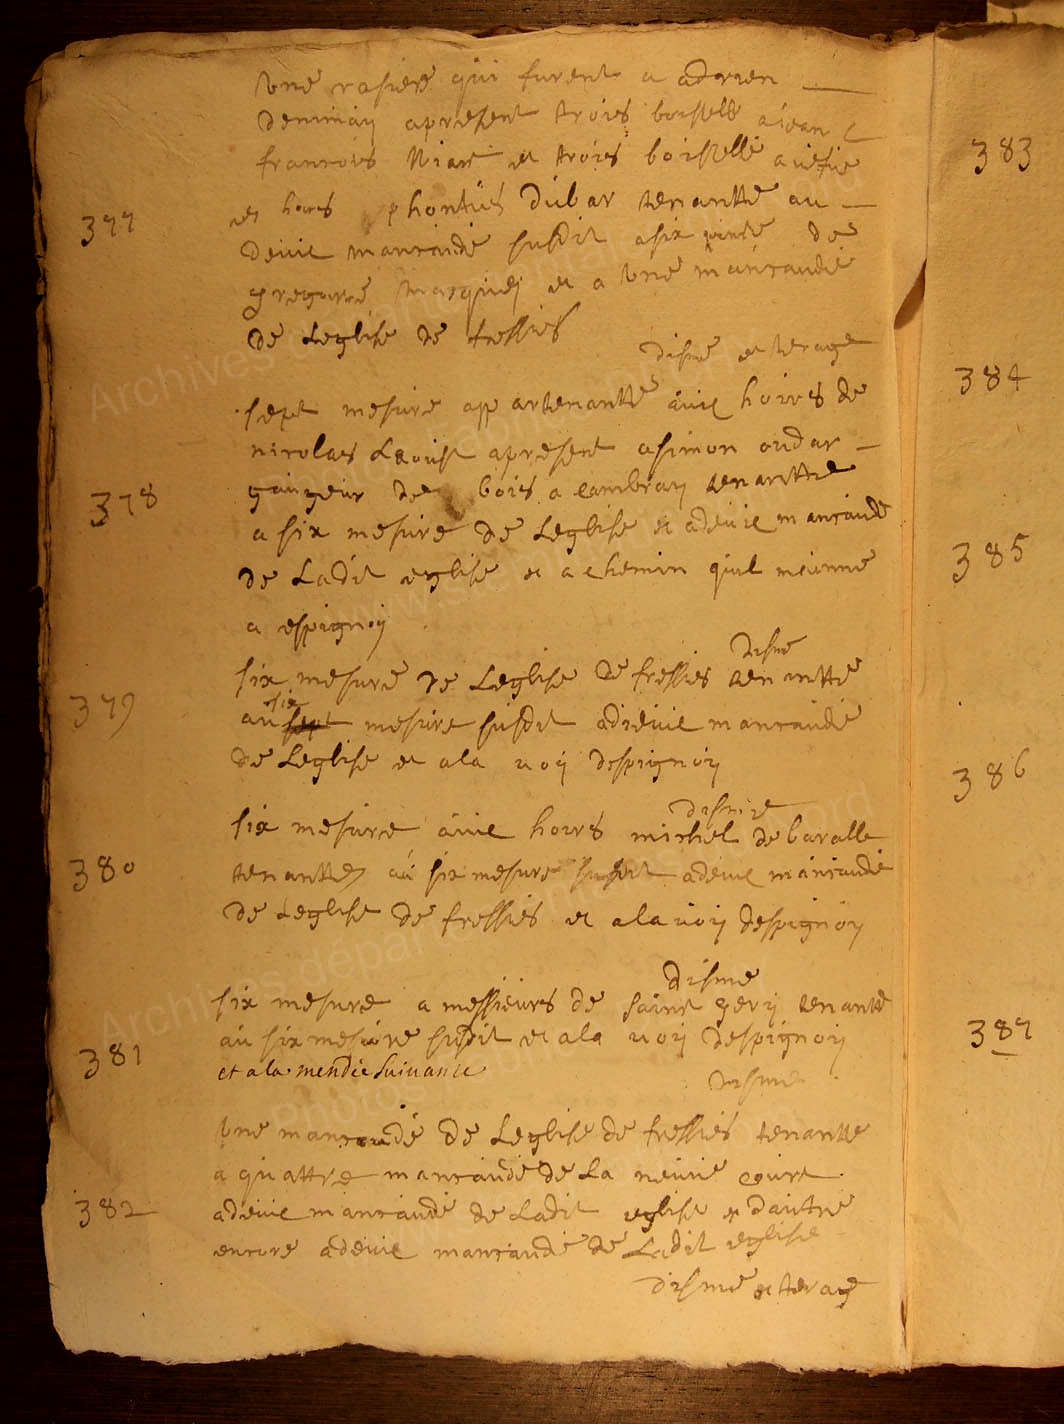 Une rasiere qui furent a adrien
deninaÿ apresent trois boistelle a iean
francois Niart et trois boistelle a
et hors dubar tenantte au
377
deuie mancaude susdit a six de
gregoire marquéÿ et a une mancaudie
de Leglise de fressies
disme et terage
sept mesure appartenantte auie hoirs de
nicolas Laoust apresent a simon oudar
378
de bois a Cambraÿ tenantte
a six mesure de Leglise et a deuie mancaude
de Ladit eglise et a chemin quil meinne
a espignoÿ
disme
six mesure de Leglise de fressies tenantte
379
six
au sept mesure susdit a deuie mancaudie
de Leglise et a la uoiÿ despignoÿ
disme
six mesure auie hoirs michel de baralle
380
tenanttes au six mesure susdit a deuie mancaude
de Leglise de fressies et a la uoiÿ despignoÿ
disme
six mesure a messieurs de saint gerÿ tenante
au six mesure susdit et a la uoiÿ despignoÿ
381
et a la mendie suivance
disme
Une mancaude de Leglise de fressies tenantte
a quattre mancaude de La neuie
382
a deuie mancaude de Ladit eglise et dautre
encore a deuie mancaude de Ladit eglise
disme et terage
383
384
385
386
387